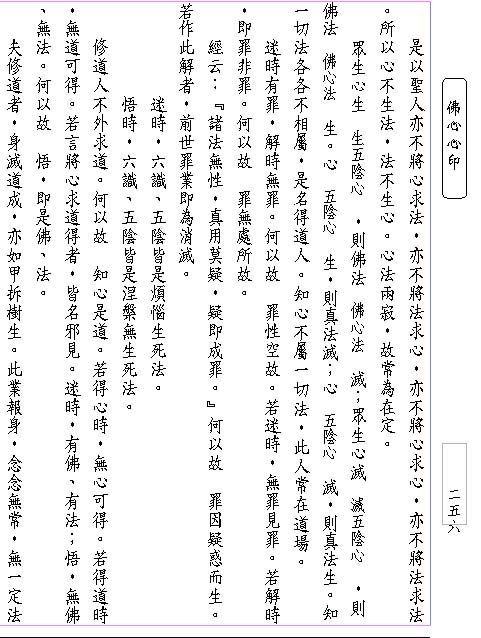 佛心心印
二五六
是以聖人亦不將心求法,亦不將法求心,亦不將心求心,亦不將法求法
。所以心不生法,法不生心。心法兩寂,故常為在定。
眾生心生 生五陰心 ,則佛法 佛心法 滅;眾生心滅 滅五陰心 ,則
佛法 佛心法 生。心 五陰心 生,則真法滅;心 五陰心 滅,則真法生。知
一切法各各不相屬,是名得道人。知心不屬一切法,此人常在道場。
迷時有罪,解時無罪。何以故 罪性空故。若迷時,無罪見罪。若解時
,即罪非罪。何以故 罪無處所故。
經云:『諸法無性,真用莫疑,疑即成罪。』何以故 罪因疑惑而生。
若作此解者,前世罪業即為消滅。
迷時,六識、五陰皆是煩惱生死法。
悟時,六識、五陰皆是涅槃無生死法。
修道人不外求道。何以故 知心是道。若得心時,無心可得。若得道時
,無道可得。若言將心求道得者,皆名邪見。迷時,有佛、有法;悟,無佛
、無法。何以故 悟,即是佛、法。
夫修道者,身滅道成,亦如甲拆樹生。此業報身,念念無常,無一定法